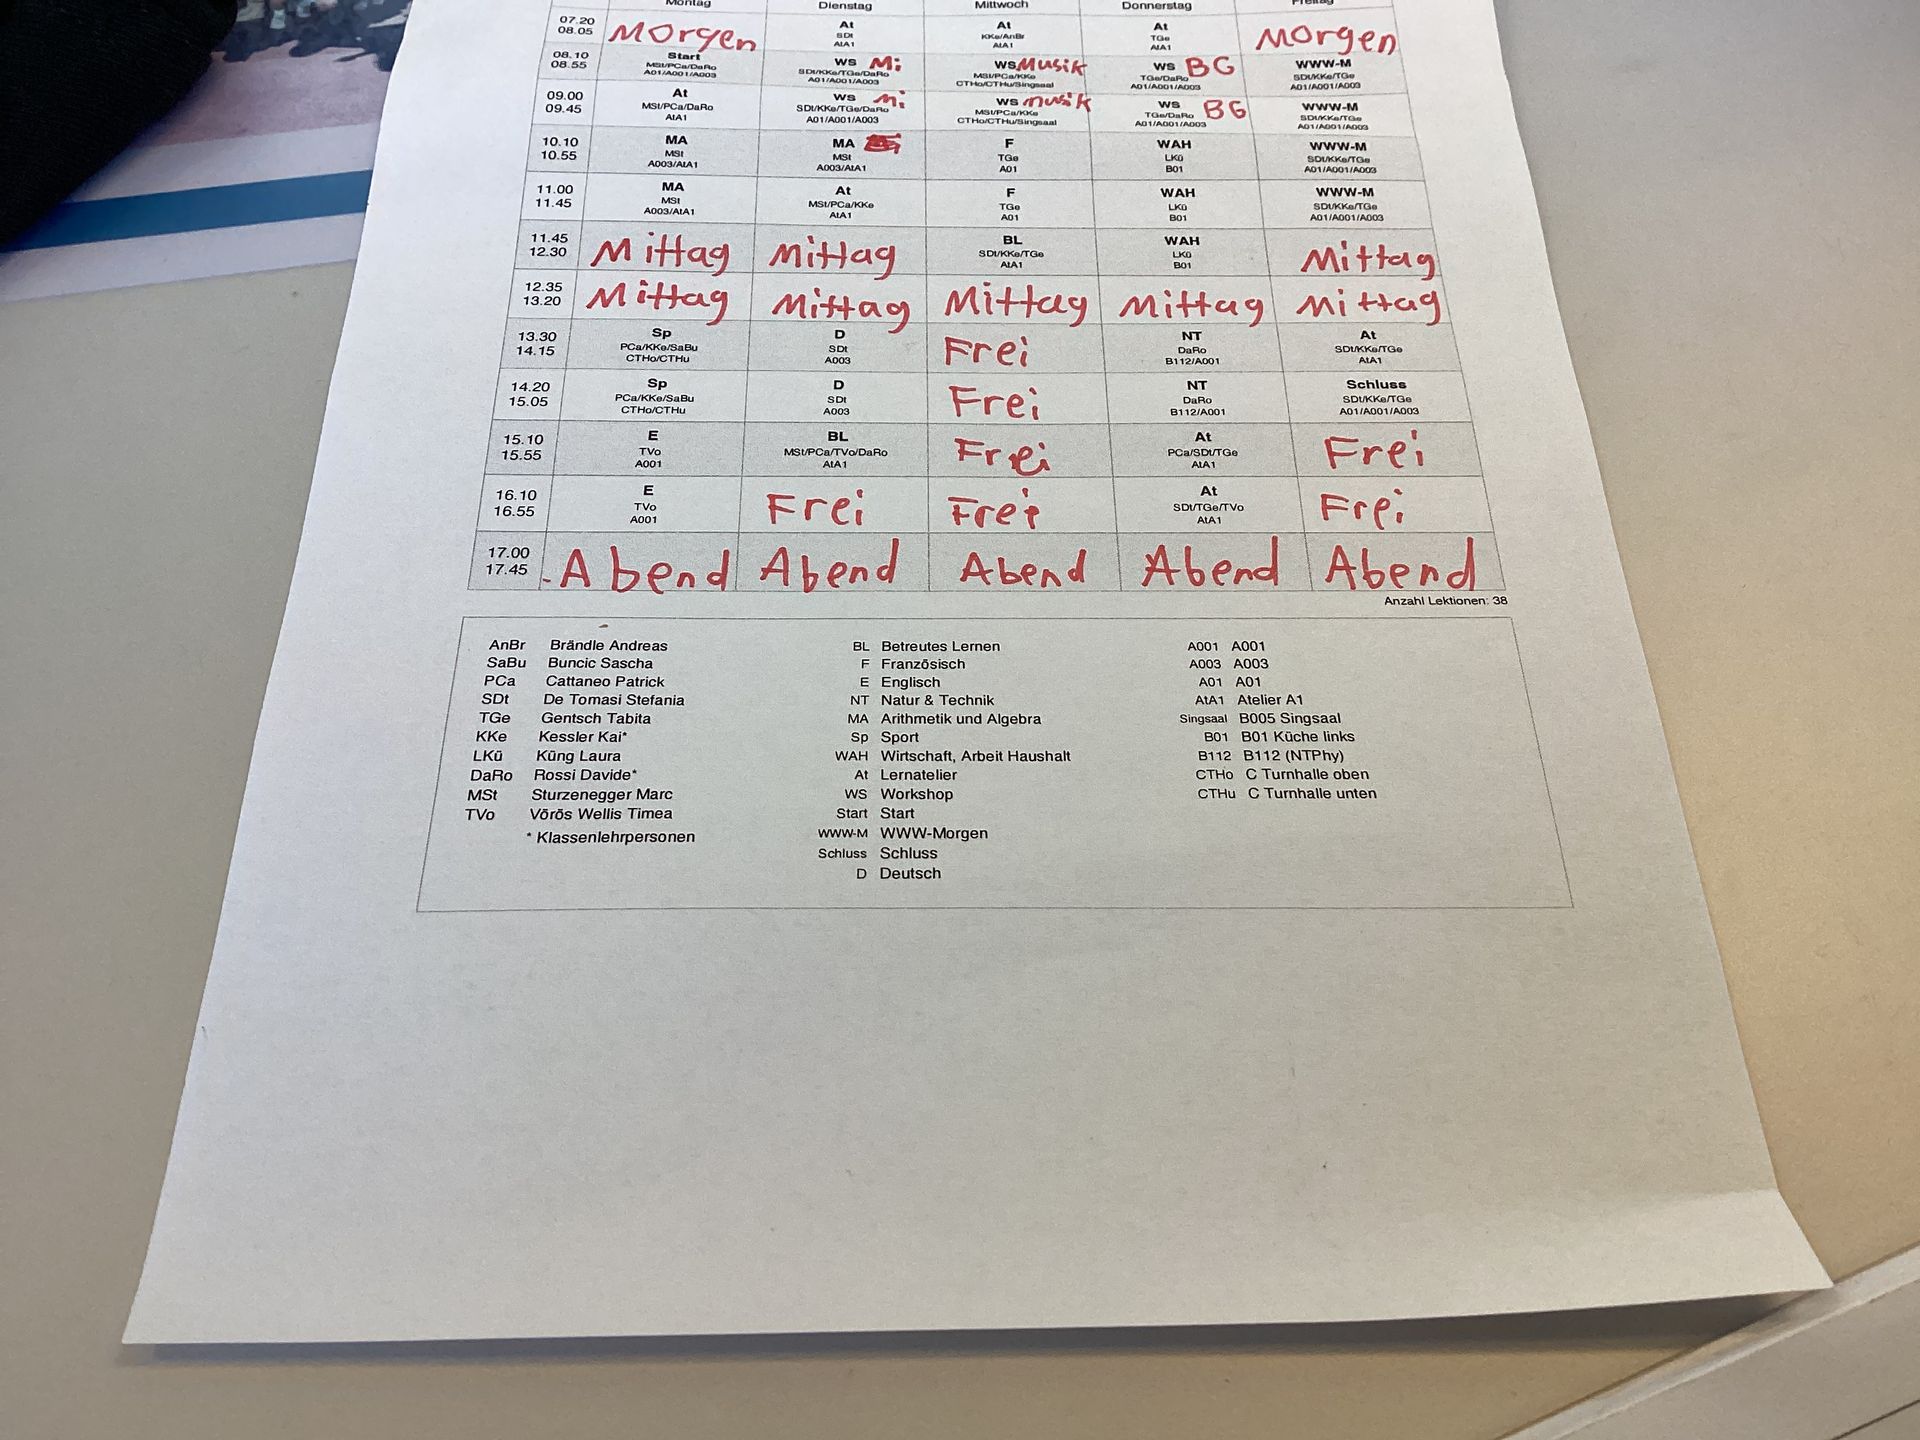 Montag Dienstag Mittwoch Donnerstag Freitag
07.20 Morgen At At At Morgen
08.05 SDt KKe/AnBr TGe
AtA1 AtA1 AtA1
08.10 Start WS Mi WS Musik WS BG WWW-M
08.55 MSt/PCa/DaRo SDt/KKe/TGe/DaRo MSt/PCa/KKe TGe/DaRo SDt/KKe/TGe
A01/A001/A003 A01/A001/A003 CTHo/CTHu/Singsaal A01/A001/A003 A01/A001/A003
09.00 At WS Mi WS Musik WS BG WWW-M
09.45 MSt/PCa/DaRo SDt/KKe/TGe/DaRo MSt/PCa/KKe TGe/DaRo SDt/KKe/TGe
AtA1 A01/A001/A003 CTHo/CTHu/Singsaal A01/A001/A003 A01/A001/A003
10.10 MA MA F WAH WWW-M
10.55 MSt MSt TGe LKü SDt/KKe/TGe
A003/AtA1 A003/AtA1 A01 B01 A01/A001/A003
11.00 MA At F WAH WWW-M
11.45 MSt MSt/PCa/KKe TGe LKü SDt/KKe/TGe
A003/AtA1 AtA1 A01 B01 A01/A001/A003
11.45 Mittag Mittag BL WAH Mittag
12.30 SDt/KKe/TGe LKü
AtA1 B01
12.35 Mittag Mittag Mittag Mittag Mittag
13.20
13.30 Sp D Frei NT At
14.15 PCa/KKe/SaBu SDt DaRo SDt/KKe/TGe
CTHo/CTHu A003 B112/A001 AtA1
14.20 Sp D Frei NT Schluss
15.05 PCa/KKe/SaBu SDt DaRo SDt/KKe/TGe
CTHo/CTHu A003 B112/A001 A01/A001/A003
15.10 E BL Frei At Frei
15.55 TVo MSt/PCa/TVo/DaRo PCa/SDt/TGe
A001 AtA1 AtA1
16.10 E Frei Frei At Frei
16.55 TVo SDt/TGe/TVo
A001 AtA1
17.00 Abend Abend Abend Abend Abend
17.45
Anzahl Lektionen: 38
AnBr Brändle Andreas
SaBu Buncic Sascha
PCa Cattaneo Patrick
SDt De Tomasi Stefania
TGe Gentsch Tabita
KKe Kessler Kai*
LKü Küng Laura
DaRo Rossi Davide*
MSt Sturzenegger Marc
TVo Vörös Wellis Timea
* Klassenlehrpersonen
BL Betreutes Lernen
F Französisch
E Englisch
NT Natur & Technik
MA Arithmetik und Algebra
Sp Sport
WAH Wirtschaft, Arbeit Haushalt
At Lernatelier
WS Workshop
Start Start
WWW-M WWW-Morgen
Schluss Schluss
D Deutsch
A001 A001
A003 A003
A01 A01
AtA1 Atelier A1
Singsaal B005 Singsaal
B01 B01 Küche links
B112 B112 (NTPhy)
CTHo C Turnhalle oben
CTHu C Turnhalle unten